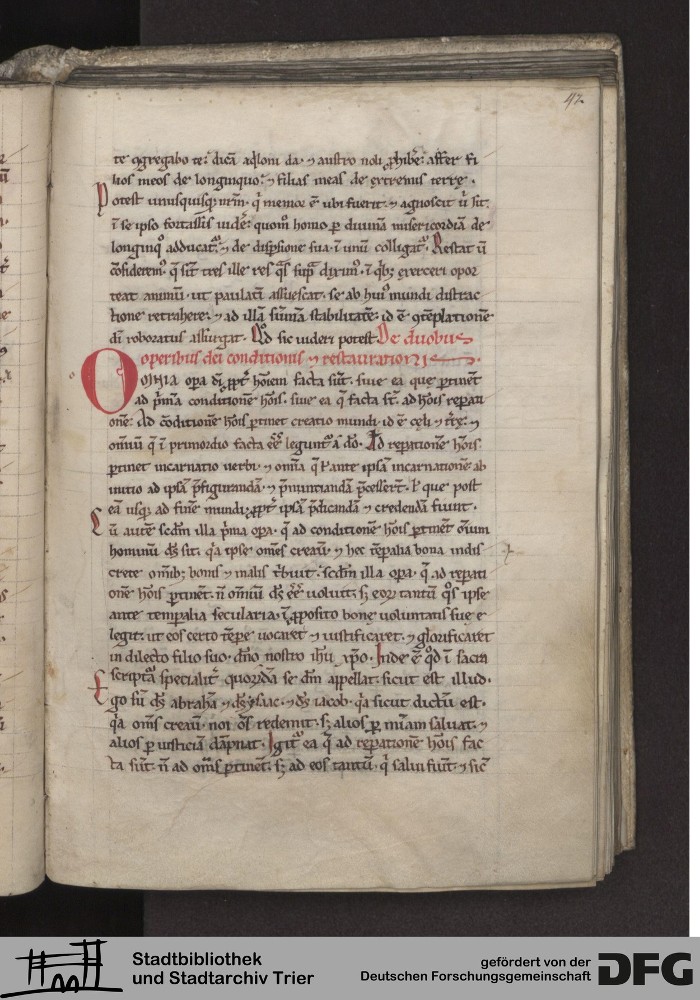 47.
te ꝯgregabo te. dicã aq̃loni da. ⁊ austro noli ꝓhibe᷒. affer fi
lios meos de longinquo. ⁊ filias meas de extremis terrę.
Potest unusquisq; nr̃m. q̃ memor ẽ ubi fuerit. ⁊ agnoscit ũ sit.
ĩ se ipso fortassis uide᷒. quom̃ homo ꝑ diuinã misericordiã de
longinq̊ adducat᷑. ⁊ de disꝑsione sua. ĩ unũ colligat᷑. Restat ũ
cõsiderem᷒. q̃ sĩt tres ille res q̃s sup̃ dixim᷒. ĩ qb; exerceri opor
teat animũ. ut paulatĩ assuescat. se ab hui᷒ mundi distrac
tione retrahere. ⁊ ad illã sũmã stabilitatẽ. id ẽ ꝯtẽplationẽ
dĩ roboratus assurgat. Qd̃ sic uideri potest. De duobus
operibus dei conditionis ⁊ restaurationis.
Omnia opa dĩ ꝓpt᷑ hoĩem facta sũt. siue ea que ꝑtinẽt
ad p̃mã conditionẽ hoĩs. siue ea q̃ facta st̃. ad hoĩs reparati
onẽ. Ad cõditionẽ hoĩs ꝑtinet creatio mundi. id ẽ cęli ⁊ tr̃ę. ⁊
omniũ q̃ ĩ primordio facta eẽ legunt᷑ a dõ. Ad reparationẽ hoĩs
ꝑtinet incarnatio uerbi. ⁊ omĩa q̃ ł ante ipsã incarnationẽ ab
initio ad ipsã p̃figurandã. ⁊ p̃nuntiandã p̃cessert̃. ł que post
eã usq; ad finẽ mundi ꝓpt᷑ ipsã p̃dicandã ⁊ credendã fiunt.
Cũ autẽ scd̃m illa p̃ma opa. q̃ ad conditionẽ hoĩs ꝑtinẽt om̃ium
hominũ dš sit. q̃a ipse om̃es creauit. ⁊ hec tẽpalia bona indis
crete om̃ib; bonis ⁊ malis t̃buit. scd̃m illa opa. q̃ ad reparati
onẽ hoĩs ꝑtinẽt. ñ omniũ dš eẽ uoluit. s; eoꝝ tantũ q̊s ipse
ante temporalia secularia. ĩ ꝓposito bonę uoluntatis suę e
legit. ut eos certo tẽpore uocaret ⁊ iustificaret. ⁊ glorificaret
in dilecto filio suo. dño nostro ihũ xp̃o. Inde ẽ qd̃ ĩ sacra
scriptã specialit᷑ quoꝝdã se dm̃ appellat. sicut est illud.
Ego sũ dš abrahã ⁊ dš ysaac. ⁊ dš iacob. q̃a sicut dictũ est.
q̃a om̃s creauit. non õs redemit. s; alios ꝑ mĩam saluat. ⁊
alios ꝑ iusticiã dãpnat. Igit᷑ ea q̃ ad reparationẽ hoĩs fac
ta sũt. ñ ad om̃s ꝑtinẽt. s; ad eos tantũ. q̃ salui fiũt. ⁊ sic̃
Stadtbibliothek
und Stadtarchiv Trier
gefördert von der
Deutschen Forschungsgemeinschaft
DFG